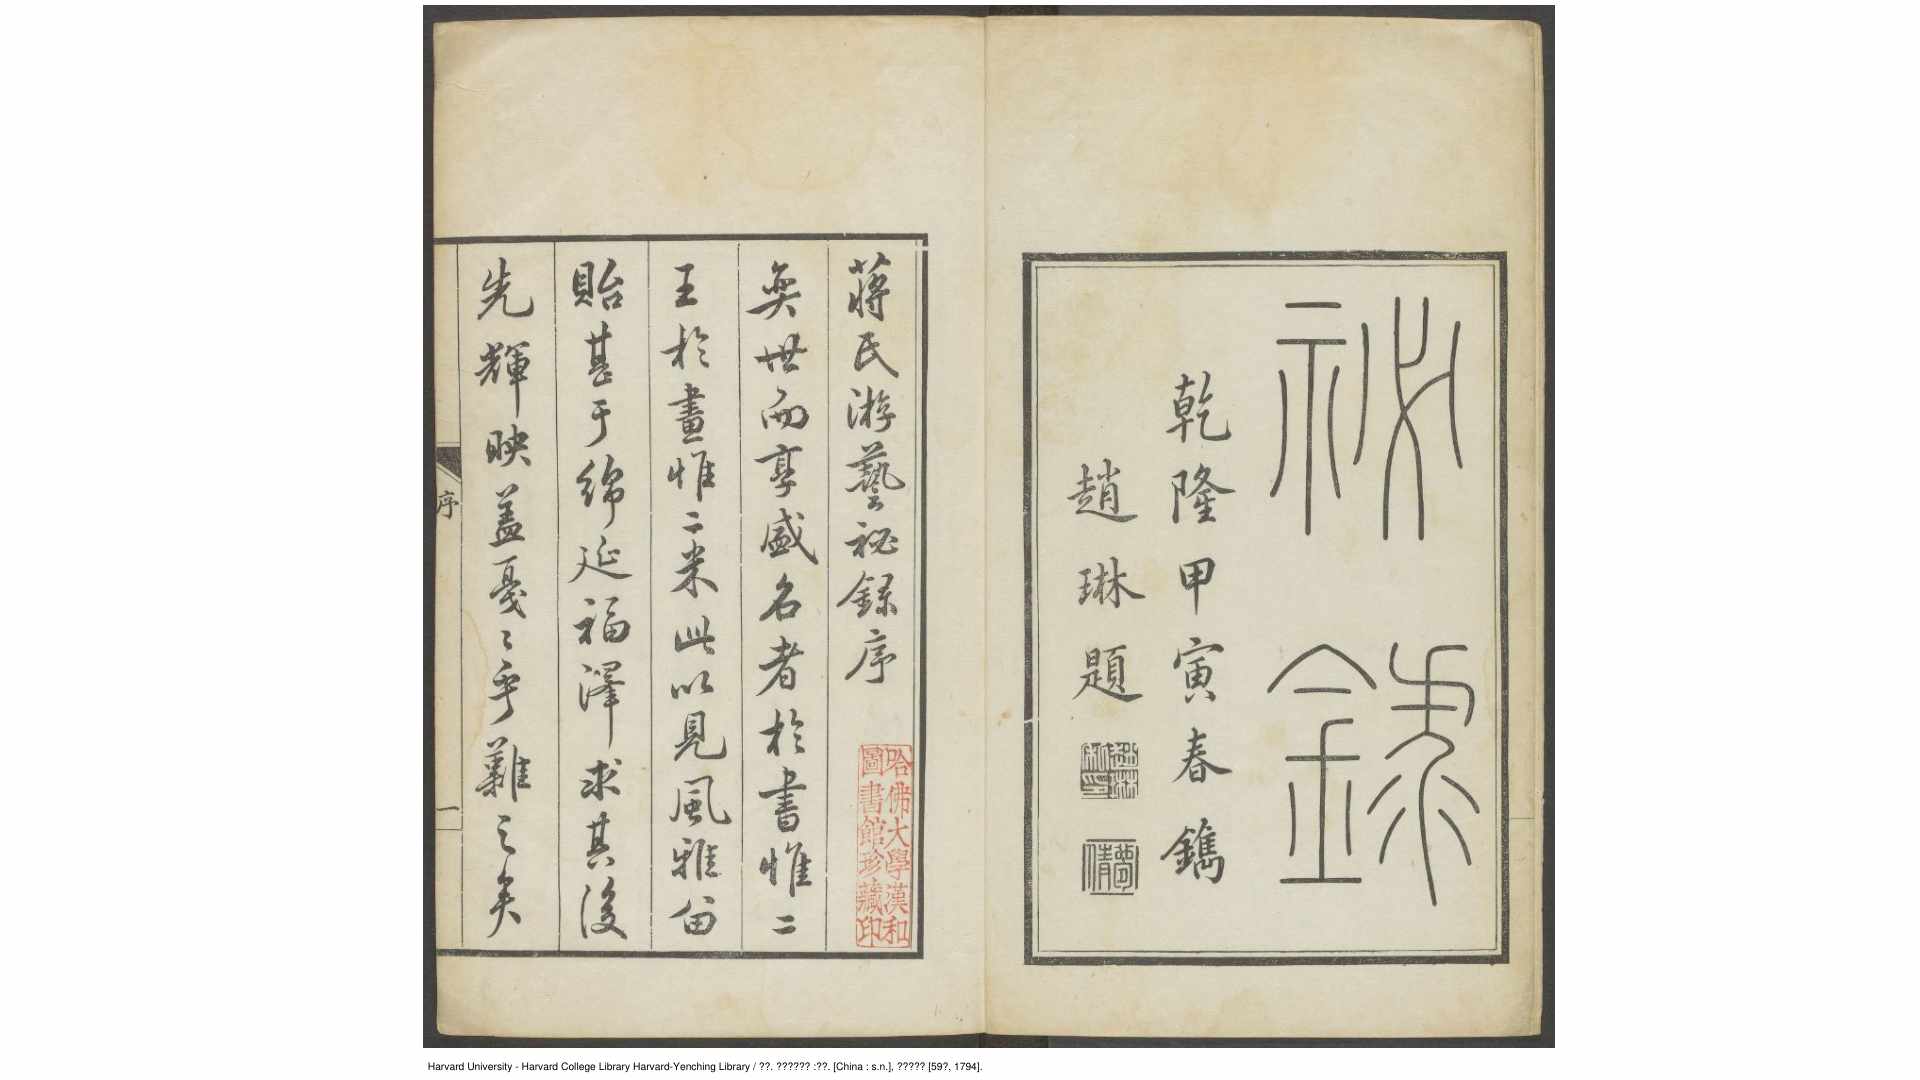 祕錄
乾隆甲寅春鐫
趙琳題
蔣氏游藝祕錄序
奕世而享盛名者於書惟二
王於畫惟二米此以見風雅留
貽甚于綿延福澤求其後
先輝映蓋戞〻乎難之矣
序
一
哈佛大學漢和
圖書館珍藏印
Harvard University - Harvard College Library Harvard-Yenching Library / ??. ?????? :??. [China : s.n.], ????? [59?, 1794].